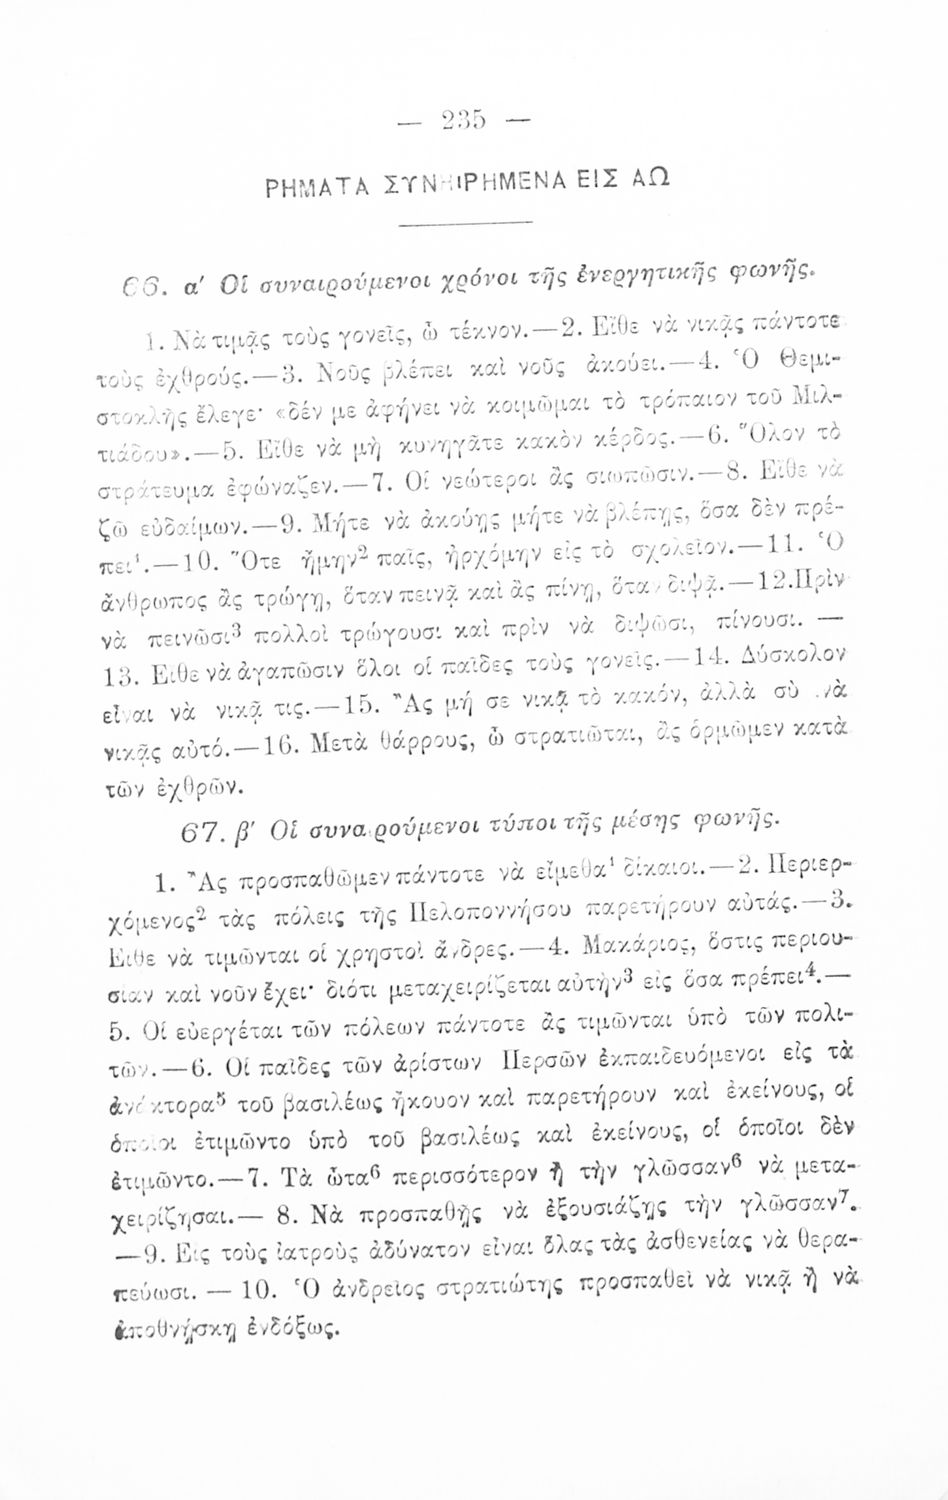 — 235 —
ΡΗΜΑΤΑ ΣΥΝΗΡΗΜΕΝΑ ΕΙΣ ΑΩ
66. α' Οἱ συναιρούμενοι χρόνοι τῆς ἐνεργητικῆς φωνῆς.
1. Νὰ τιμᾷς τοὺς γονεῖς, ὦ τέκνον.—2. Εἴθε νὰ νικᾷς πάντοτε
τοὺς ἐχθρούς.—3. Νοῦς βλέπει καὶ νοῦς ἀκούει.—4. Ὁ Θεμι-
στοκλῆς ἔλεγε· «δέν με ἀφήνει νὰ κοιμῶμαι τὸ τρόπαιον τοῦ Μιλ-
τιάδου».—5. Εἴθε νὰ μὴ κυνηγᾶτε κακὸν κέρδος.—6. Ὅλον τὸ
στράτευμα ἐφώναζεν.—7. Οἱ νεώτεροι ἂς σιωπῶσιν.—8. Εἴθε νὰ
ζῶ εὐδαίμων.—9. Μήτε νὰ ἀκούῃς μήτε νὰ βλέπῃς, ὅσα δὲν πρέ-
πει¹.—10. Ὅτε ἤμην² παῖς, ἠρχόμην εἰς τὸ σχολεῖον.—11. Ὁ
ἄνθρωπος ἂς τρώγῃ, ὅταν πεινᾷ καὶ ἂς πίνῃ, ὅταν διψᾷ.—12. Πρὶν
νὰ πεινῶσι³ πολλοὶ τρώγουσι καὶ πρὶν νὰ διψῶσι, πίνουσι. —
13. Εἴθε νὰ ἀγαπῶσιν ὅλοι οἱ παῖδες τοὺς γονεῖς.—14. Δύσκολον
εἶναι νὰ νικᾷ τις.—15. Ἂς μή σε νικᾷ τὸ κακόν, ἀλλὰ σὺ νὰ
νικᾷς αὐτό.—16. Μετὰ θάρρους, ὦ στρατιῶται, ἂς ὁρμῶμεν κατὰ
τῶν ἐχθρῶν.
67. β' Οἱ συναιρούμενοι τύποι τῆς μέσης φωνῆς.
1. Ἂς προσπαθῶμεν πάντοτε νὰ εἴμεθα¹ δίκαιοι.—2. Περιερ-
χόμενος² τὰς πόλεις τῆς Πελοποννήσου παρετήρουν αὐτάς.—3.
Εἴθε νὰ τιμῶνται οἱ χρηστοὶ ἄνδρες.—4. Μακάριος, ὅστις περιου-
σίαν καὶ νοῦν ἔχει· διότι μεταχειρίζεται αὐτὴν³ εἰς ὅσα πρέπει⁴.—
5. Οἱ εὐεργέται τῶν πόλεων πάντοτε ἂς τιμῶνται ὑπὸ τῶν πολι-
τῶν.—6. Οἱ παῖδες τῶν ἀρίστων Περσῶν ἐκπαιδευόμενοι εἰς τὰ
ἀνάκτορα⁵ τοῦ βασιλέως ἤκουον καὶ παρετήρουν καὶ ἐκείνους, οἱ
ὁποῖοι ἐτιμῶντο ὑπὸ τοῦ βασιλέως καὶ ἐκείνους, οἱ ὁποῖοι δὲν
ἐτιμῶντο.—7. Τὰ ὦτα⁶ περισσότερον ἢ τὴν γλῶσσαν⁶ νὰ μετα-
χειρίζησαι.— 8. Νὰ προσπαθῇς νὰ ἐξουσιάζῃς τὴν γλῶσσαν⁷.
—9. Εἰς τοὺς ἰατροὺς ἀδύνατον εἶναι ὅλας τὰς ἀσθενείας νὰ θερα-
πεύωσι. — 10. Ὁ ἀνδρεῖος στρατιώτης προσπαθεῖ νὰ νικᾷ ἢ νὰ
ἀποθνῄσκῃ ἐνδόξως.